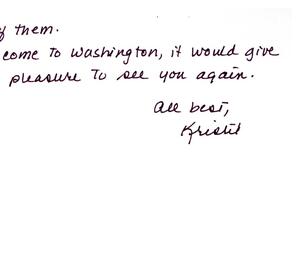 them.
come to Washington, it would give
pleasure to see you again.
All best,